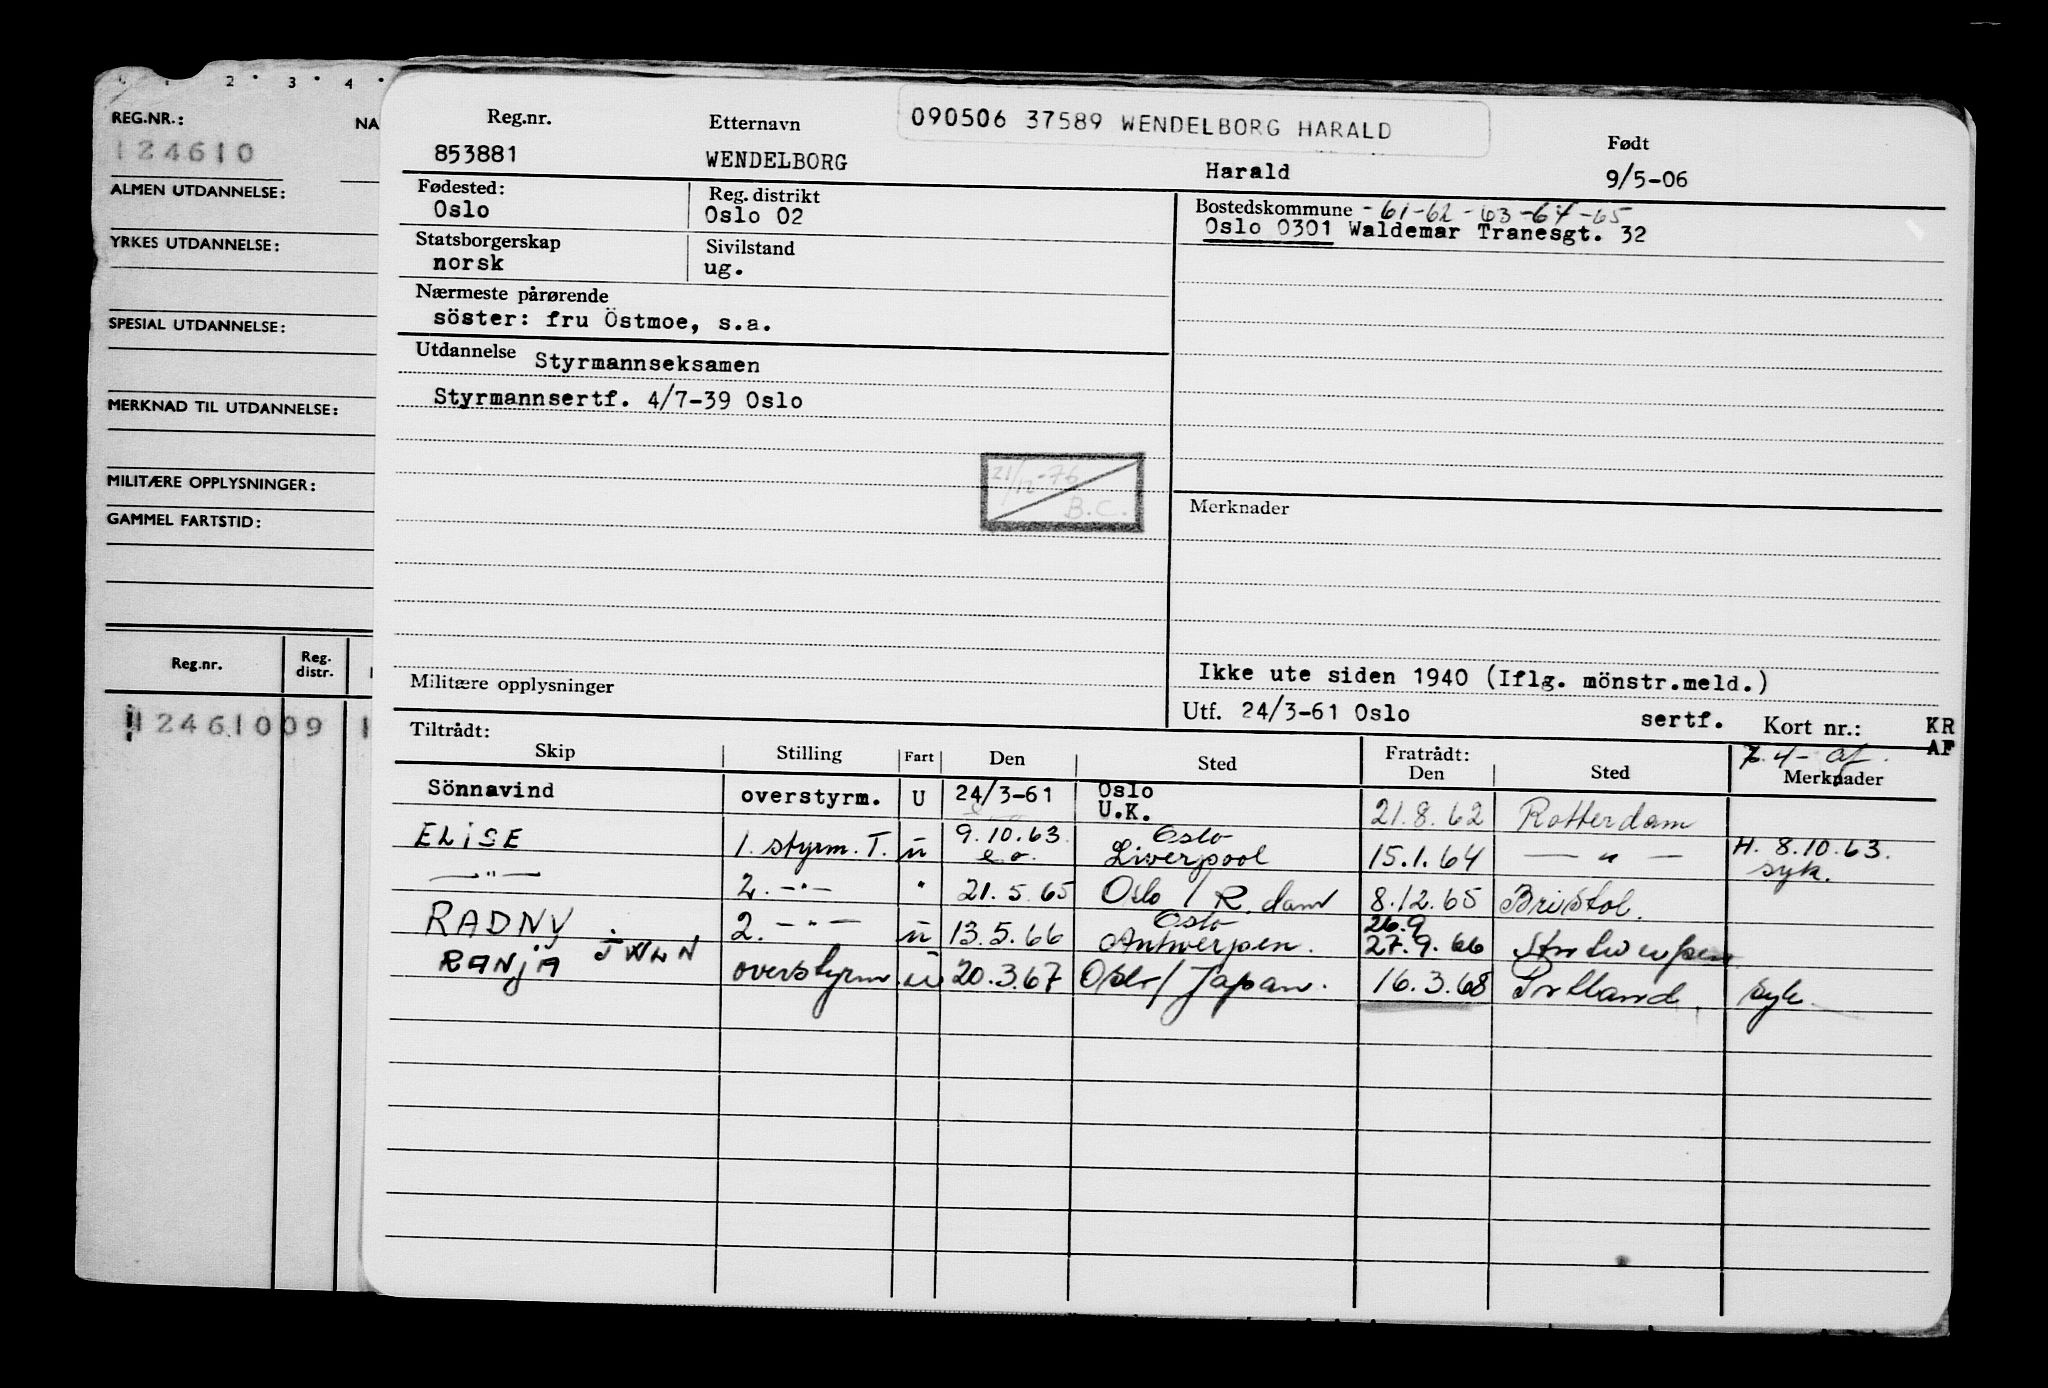 2 3 4
REG.NR.:
NA
124610
ALMEN UTDANNELSE:
YRKES UTDANNELSE:
SPESIAL UTDANNELSE:
MERKNAD TIL UTDANNELSE:
MILITÆRE OPPLYSNINGER:
GAMMEL FARTSTID:
Reg.nr. Reg. distr.
12461009 1
090506 37589 WENDELBORG HARALD
Reg.nr. Etternavn Født
853881 WENDELBORG Harald 9/5-06
Fødested: Reg. distrikt Bostedskommune -61-62-63-64-65
Oslo Oslo 02 Oslo 0301 Waldemar Tranesgt. 32
Statsborgerskap Sivilstand
norsk ug.
Nærmeste pårørende
söster: fru Östmoe, s.a.
Utdannelse Styrmannseksamen
Styrmannsertf. 4/7-39 Oslo
21/12-76
B.C.
Merknader
Ikke ute siden 1940 (Iflg. mönstr.meld.)
Militære opplysninger
Utf. 24/3-61 Oslo sertf. Kort nr.: KR
AF
Tiltrådt: Fratrådt:
Skip Stilling Fart Den Sted Den Sted Merknader
Sönnavind overstyrm. U 24/3-61 Oslo
U.K. 21.8.62 Rotterdam
ELISE 1. styrm. T. u 9.10.63. Oslo
e.o. Liverpool 15.1.64 — " — H. 8.10.63.
syk.
— " — 2. - " - " 21.5.65 Oslo / R.dam 8.12.65 Bristol.
RADNY 2. - " - u 13.5.66 Oslo
Antwerpen. 26.9
27.9.66 Antwerpen
RANJA overstyrm. u 20.3.67 Oslo/Japan. 16.3.68 Portland. Syk.